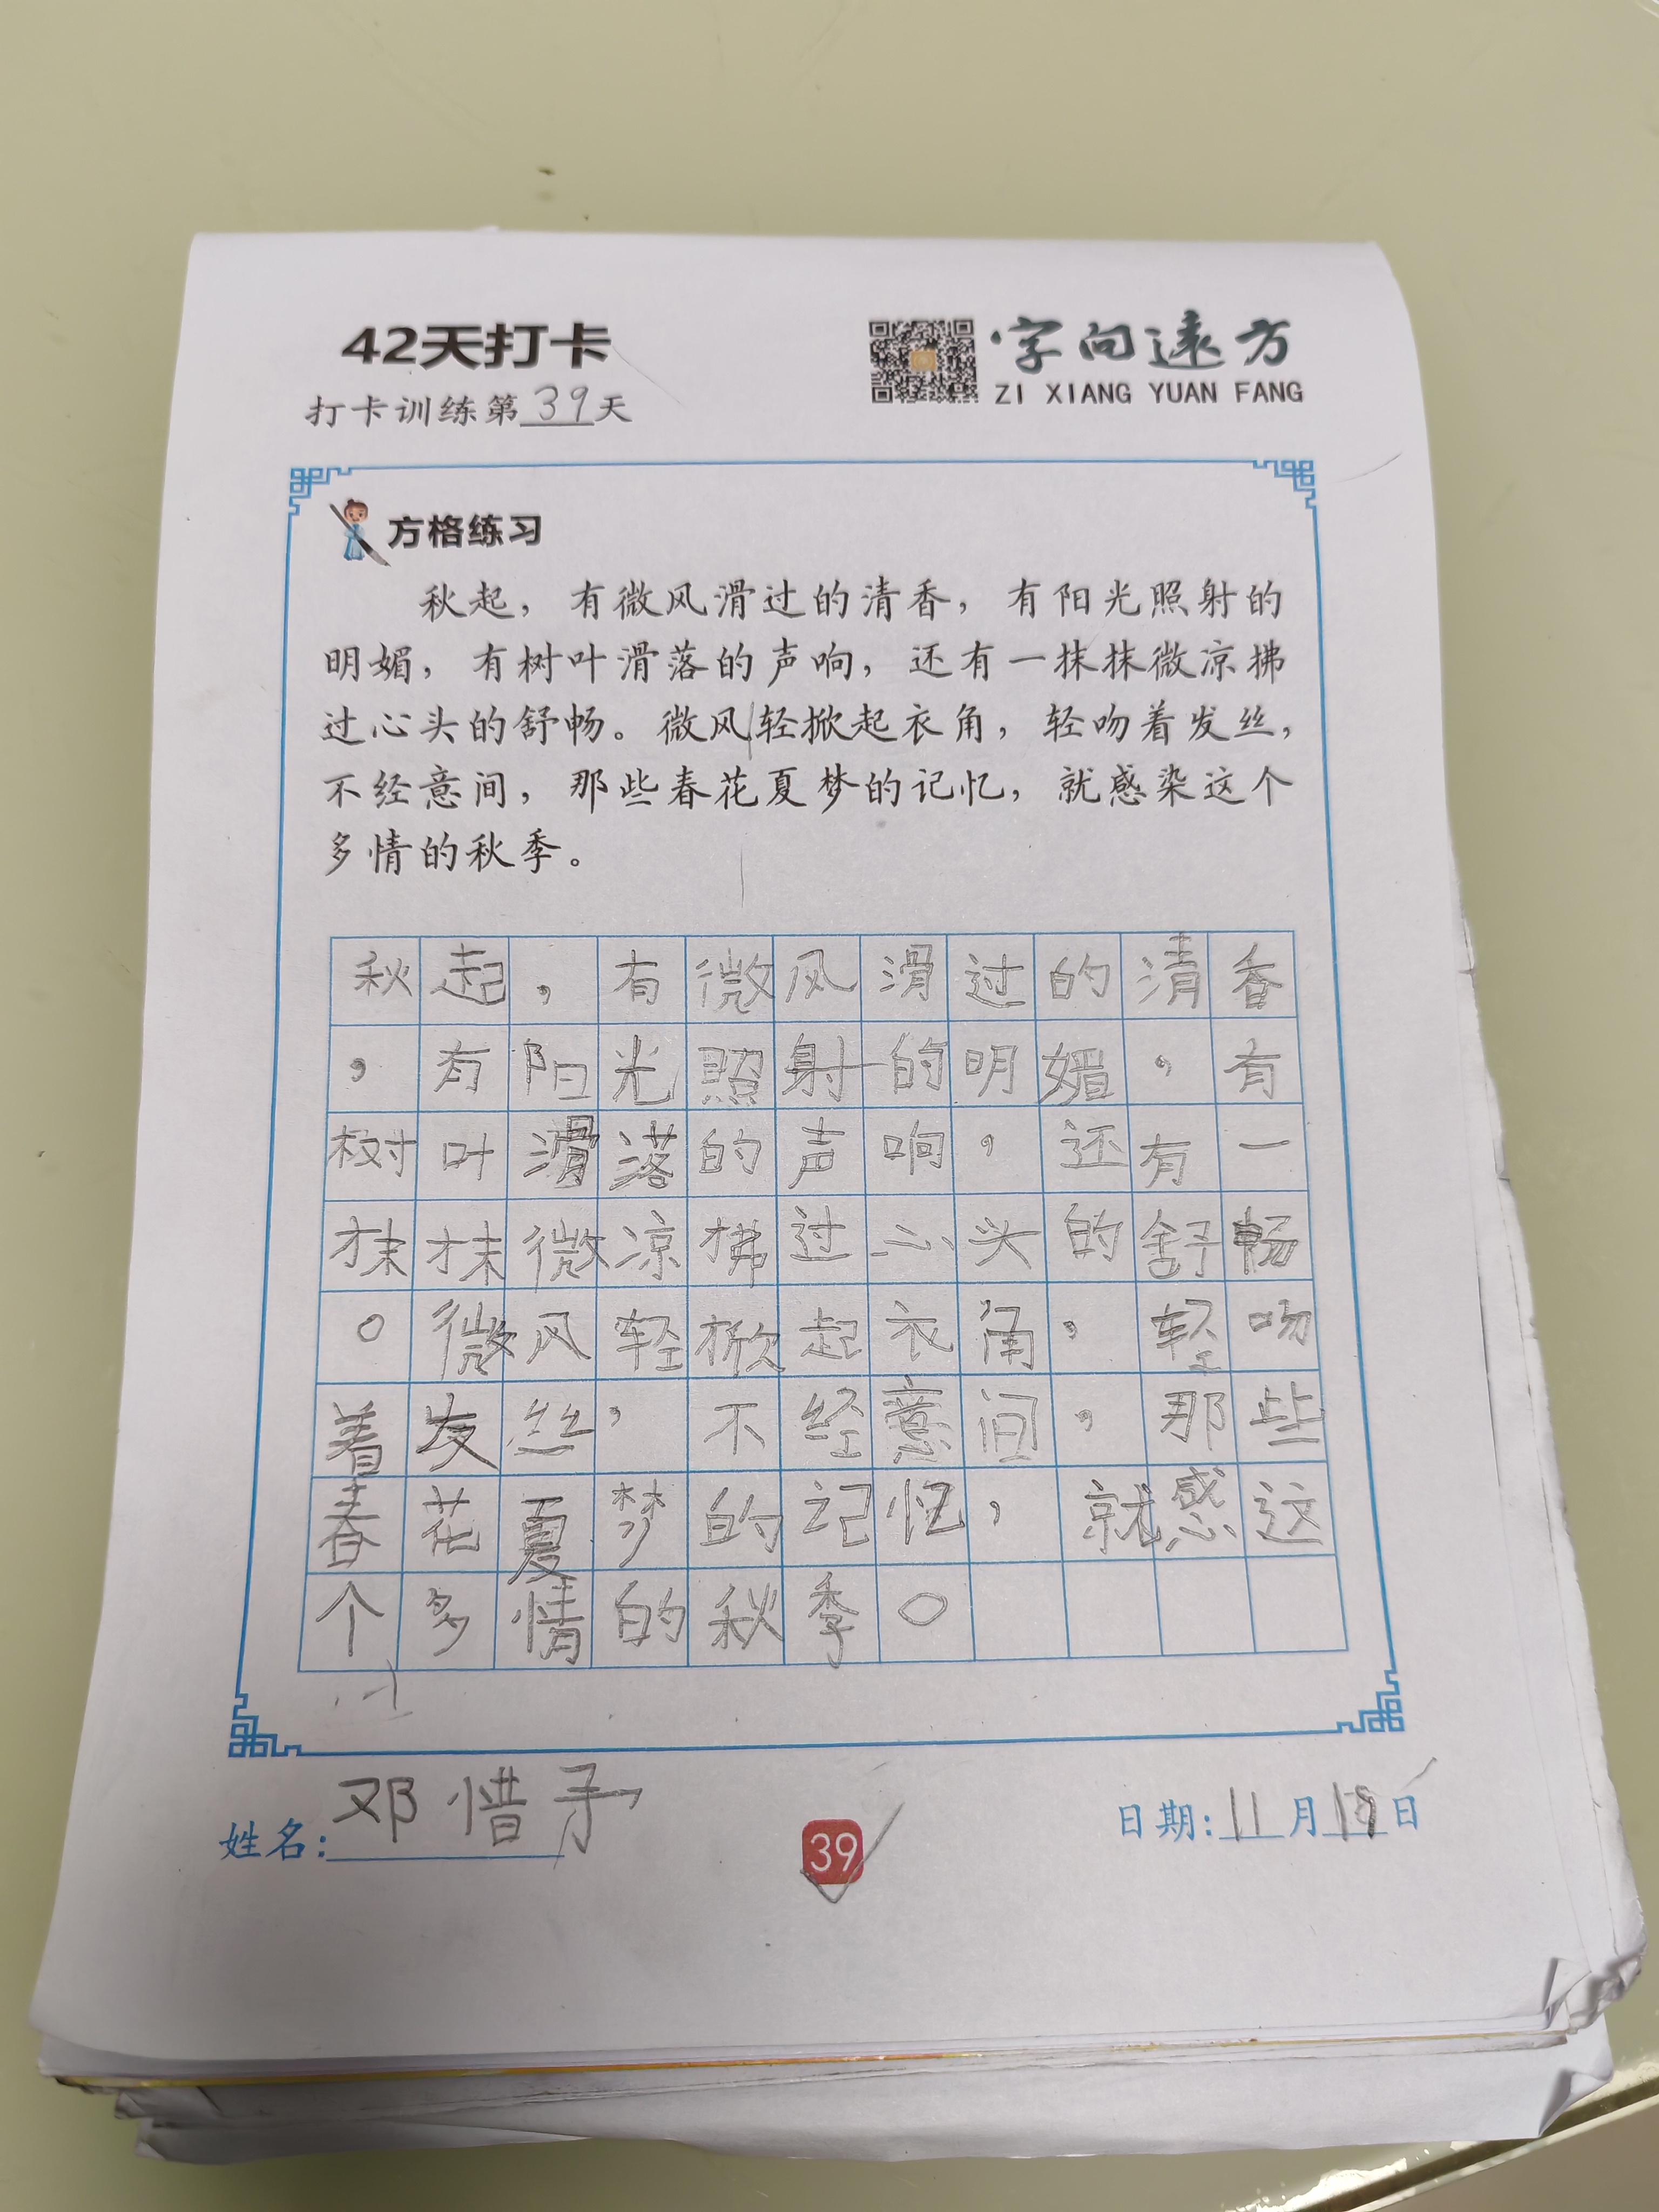 42天打卡
字向遠方
ZI XIANG YUAN FANG
打卡训练第39天
方格练习
秋起，有微风滑过的清香，有阳光照射的
明媚，有树叶滑落的声响，还有一抹抹微凉拂
过心头的舒畅。微风轻掀起衣角，轻吻着发丝，
不经意间，那些春花夏梦的记忆，就感染这个
多情的秋季。
秋起，有微风滑过的清香
，有阳光照射的明媚，有
树叶滑落的声响，还有一
抹抹微凉拂过心头的舒畅
。微风轻掀起衣角，轻吻
着发丝，不经意间，那些
春花夏梦的记忆，就感这
个多情的秋季。
姓名：邓惜予
39
日期：11月19日